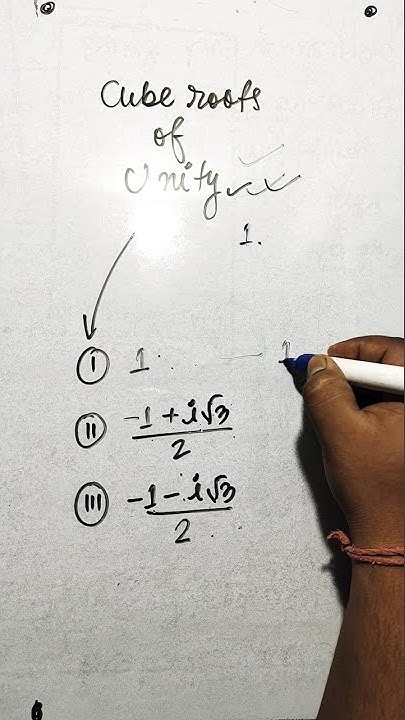 Cube roots
of
Unity
1.
I 1. — 1
II -1 + i√3
2
III -1 - i√3
2